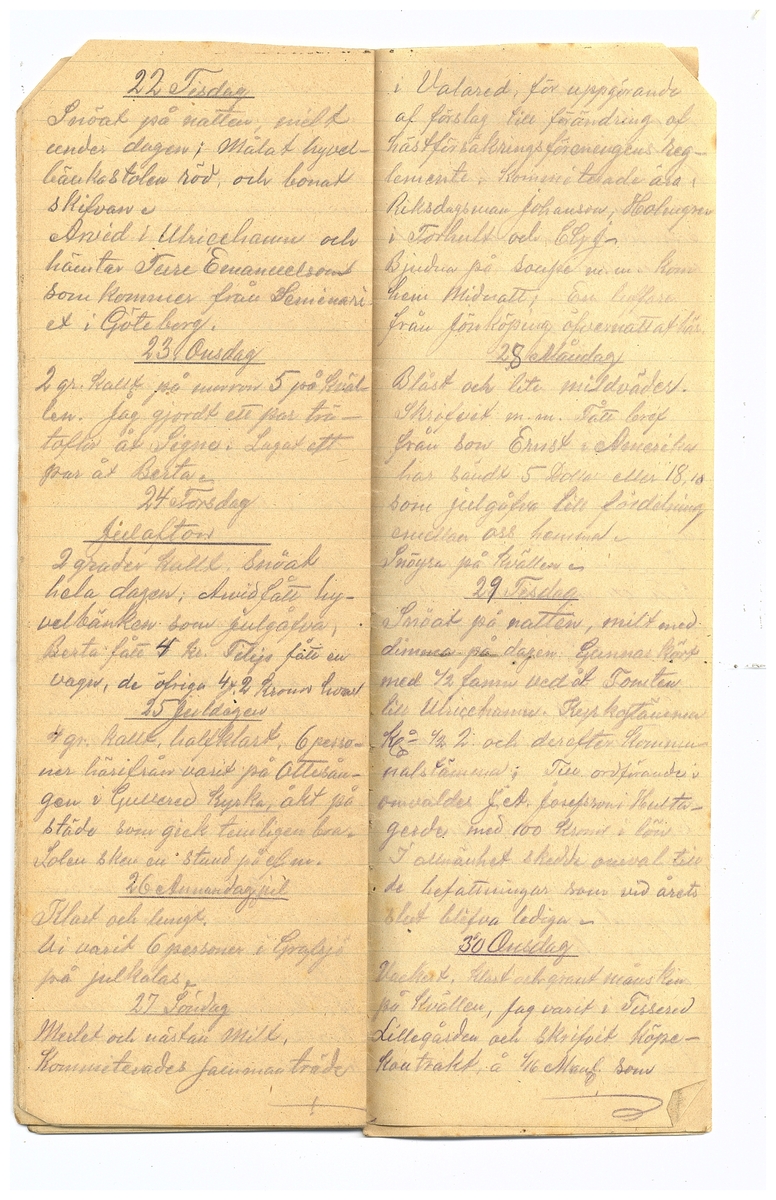 22 Tisdag
Snöat på natten, mildt
under dagen; Målat hyvel-
bänkastolen röd, och bonat
skifvan.
Arvid i Ulricehamn och
hämtar Ture Emanuelsons
som kommer från Seminari-
et i Göteborg.
23 Onsdag
2 gr. kallt på morron 5 på kväl-
len. Jag gjordt ett par trä-
tofflor åt Signe. Lagat ett
par åt Berta.
24 Torsdag
Julafton
2 grader kallt. Snöat
hela dagen; Arvid fått hy-
velbänken som julgåfva,
Berta fått 4 kr. fått en
vagn, de öfriga 4, 2 kronor hvar
25 Juldagen
4 gr. kallt, halfklart, 6 perso-
ner härifrån varit på Ottesån-
gen i Gullered kyrka, åkt på
släde som gick temligen bra.
Solen sken en stund på e.m.
26 Annandag jul
Klart och lungt.
Vi varit 6 personer i
på julkalas.
27 Söndag
Merlet och nästan milt.
Kommiterades sammanträde
i Valared, för uppgörande
af förslag till förändring af
hästförsäkringsföreningens reg-
lemente. Kommiterade äro:
Riksdagsman Johanson, Holmgren
i Torhult och
Bjudna på soupe m.m. kom
hem Midnatt; En luffare
från Jönköping öfvernattat här.
28 Måndag
Blåst och lite mildväder.
m.m. Fått bref
från son Ernst i Amerika
har sändt 5 Dollar eller 18,10
som julgåfva till fördelning
emellan oss hemma.
Snöyra på kvällen.
29 Tisdag
Snöat på natten, milt med
dimma på dagen. Gunnar kört
med 1/2 famn ved åt Tomten
till Ulricehamn. Kyrkostämma
kl. 1/2 2 och derefter Kommu-
nalstämma; Till ordförande
omvaldes J.A. Josefson i Hulta-
gerde med 100 Kronor i lön
I allmänhet skedde omval till
de befattningar som vid årets
slut blifva lediga.
30 Onsdag
Vackert. klart och grant månsken
på kvällen, Jag varit i Tissered
Lillegården och skrifvit köpe-
kontrakt, å 1/16 Mantl som